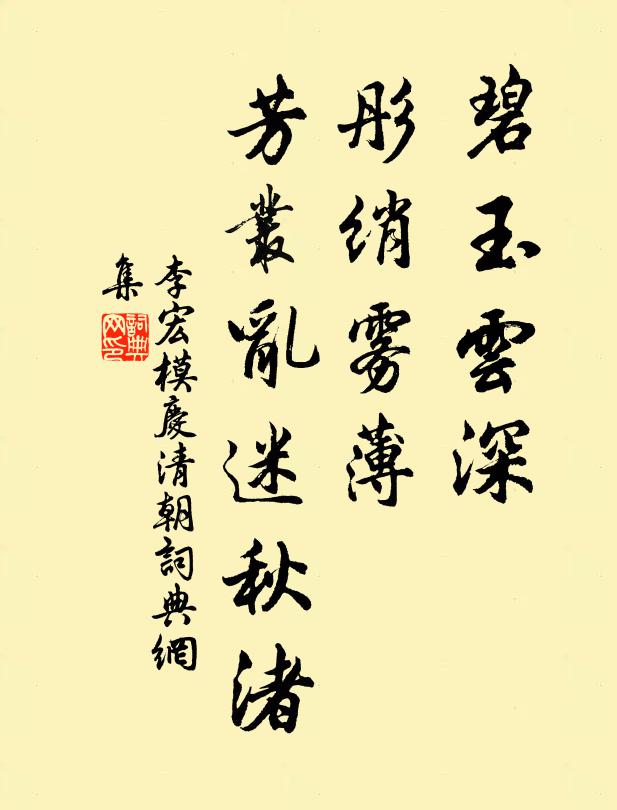 碧玉雲深
彤綃雾薄
芳叢亂迷秋渚
李宏模慶清朝詞典網
集
詞典
网印